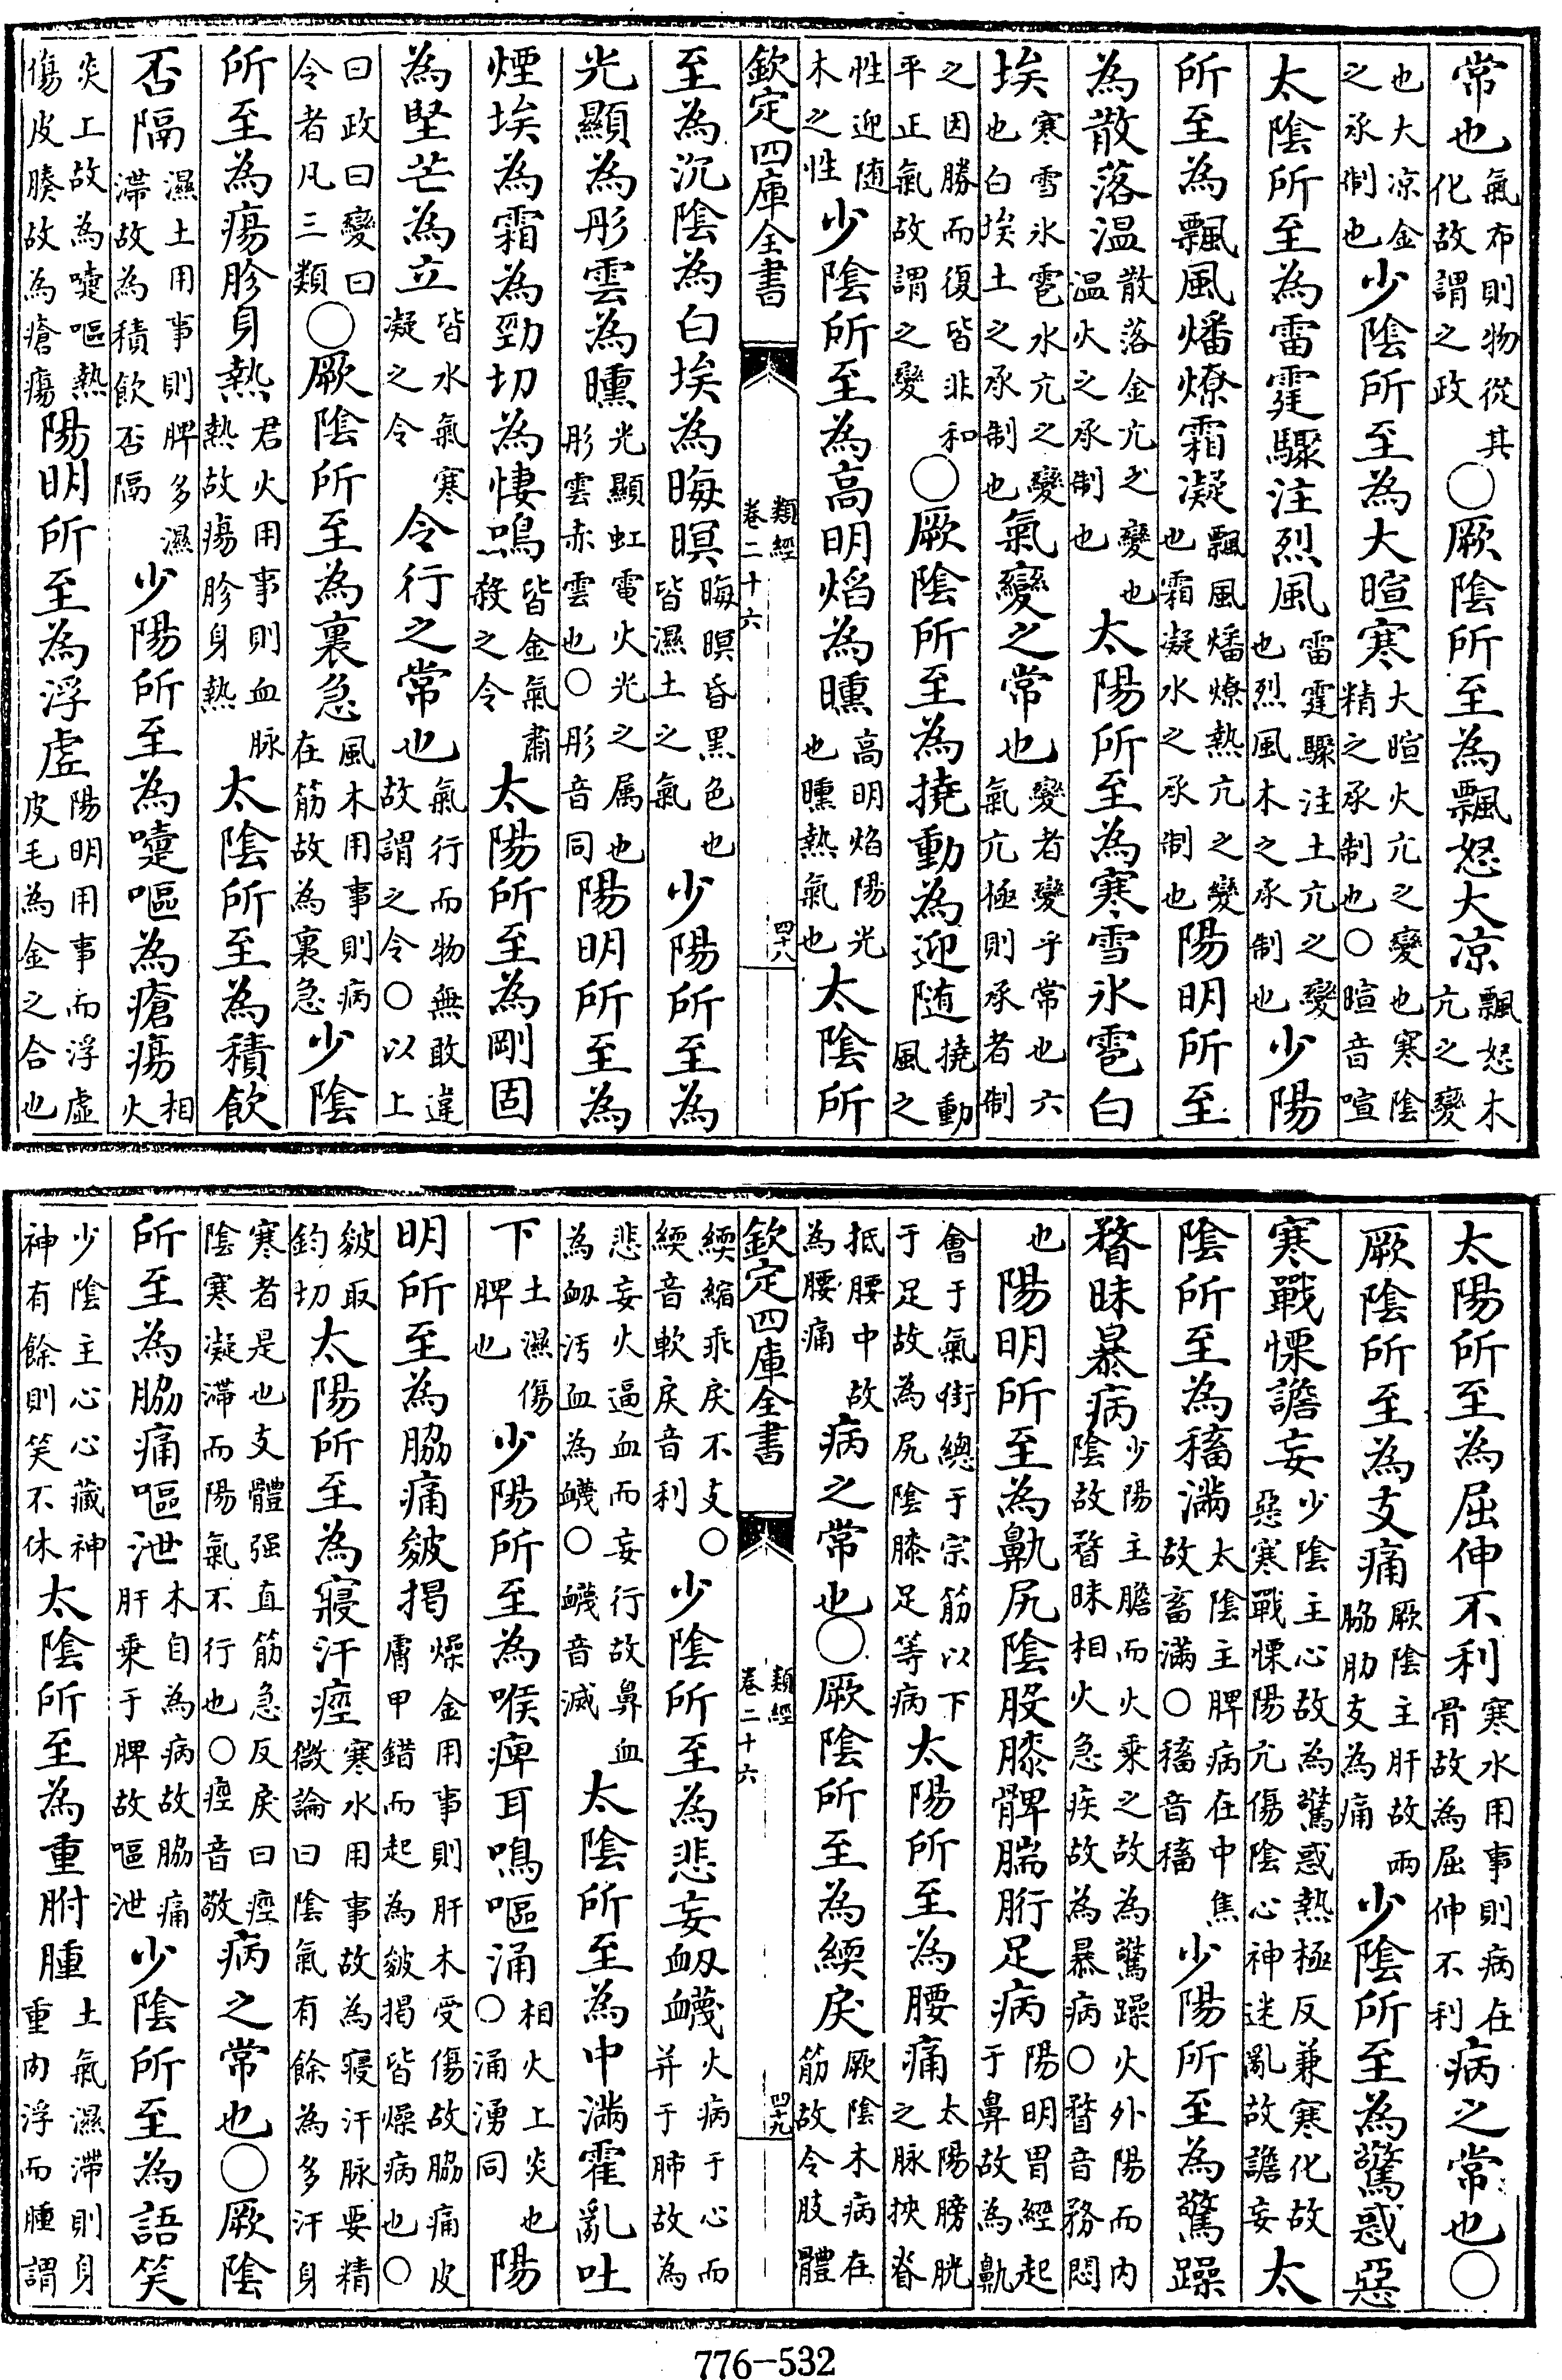 常也氣布則物從其化故謂之政○厥陰所至為飄怒大凉飄怒木亢之變
也大凉金之承制也少陰所至為大暄寒大暄火亢之變也寒陰精之承制也○暄音喧
太陰所至為雷霆驟注烈風雷霆驟注土亢之變也烈風木之承制也少陽
所至為飄風燔燎霜凝飄風燔燎熱亢之變也霜凝水之承制也陽明所至
為散落温散落金亢之變也温火之承制也太陽所至為寒雪氷雹白
埃寒雪氷雹水亢之變也白埃土之承制也氣變之常也變者變乎常也六氣亢極則承者制
之因勝而復皆非和平正氣故謂之變○厥陰所至為撓動為迎随撓動風之
性迎随木之性少陰所至為高明焰為曛高明焰陽光也曛熱氣也太陰所
欽定四庫全書 類經 卷二十六 四十八
至為沉陰為白埃為晦暝晦暝昏黑色也皆濕土之氣少陽所至為
光顯為彤雲為曛光顯虹電火光之属也彤雲赤雲也○彤音同陽明所至為
煙埃為霜為勁切為悽鳴皆金氣肅殺之令太陽所至為剛固
為堅芒為立皆水氣寒凝之令令行之常也氣行而物無敢違故謂之令○以上
曰政曰變曰令者凡三類○厥陰所至為裏急風木用事則病在筋故為裏急少陰
所至為瘍胗身熱君火用事則血脉熱故瘍胗身熱太陰所至為積飲
否隔濕土用事則脾多濕滯故為積飲否隔少陽所至為嚏嘔為瘡瘍相火
炎上故為嚏嘔熱傷皮腠故為瘡瘍陽明所至為浮虚陽明用事而浮虚皮毛為金之合也
太陽所至為屈伸不利寒水用事則病在骨故為屈伸不利病之常也○
厥陰所至為支痛厥陰主肝故兩脇肋支為痛少陰所至為驚惑惡
寒戰慄譫妄少陰主心故為驚惑熱極反兼寒化故惡寒戰慄陽亢傷陰心神迷亂故譫妄太
陰所至為稸滿太陰主脾病在中焦故畜滿○稸音稸少陽所至為驚躁
瞀昧暴病少陽主膽而火乘之故為驚躁火外陽而内陰故瞀昧相火急疾故為暴病○瞀音務悶
也陽明所至為鼽尻陰股膝髀腨䯒足病陽明胃經起于鼻故為鼽
會于氣街總于宗筋以下于足故為尻陰膝足等病太陽所至為腰痛太陽膀胱之脉挾脊
抵腰中故為腰痛病之常也○厥陰所至為緛戾厥陰木病在筋故令肢體
欽定四庫全書 類經 卷二十六 四十九
緛縮乖戾不支○緛音軟戾音利少陰所至為悲妄衂衊火病于心而并于肺故為
悲妄火逼血而妄行故鼻血為衂汚血為衊○衊音滅太陰所至為中滿霍亂吐
下土濕傷脾也少陽所至為喉痺耳鳴嘔涌相火上炎也○涌湧同陽
明所至為脇痛皴揭燥金用事則肝木受傷故脇痛皮膚甲錯而起為皴揭皆燥病也○
皴取鈞切太陽所至為寢汗痙寒水用事故為寢汗脉要精微論曰陰氣有餘為多汗身
寒者是也支體强直筋急反戾曰痙陰寒凝滯而陽氣不行也○痙音敬病之常也○厥陰
所至為脇痛嘔泄木自為病故脇痛肝乗于脾故嘔泄少陰所至為語笑
少陰主心心藏神神有餘則笑不休太陰所至為重胕腫土氣濕滯則身重肉浮而腫謂
776-532